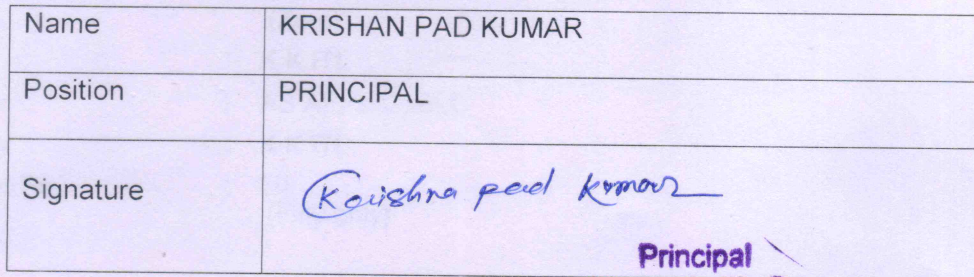 Name KRISHAN PAD KUMAR
Position PRINCIPAL
Signature Krishna pad Kumar
Principal